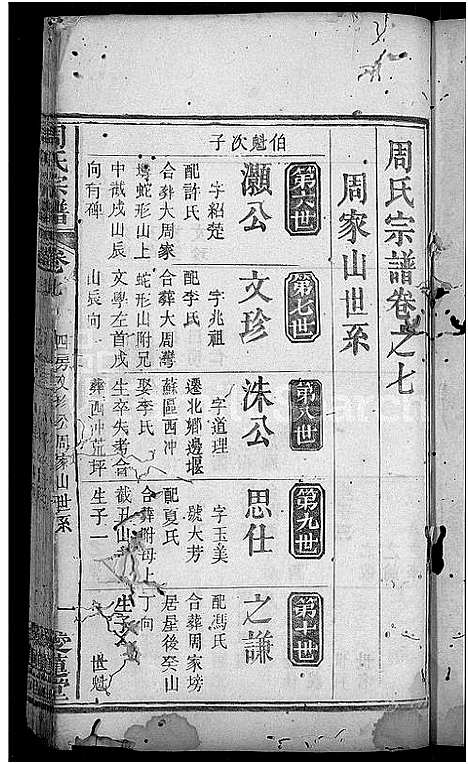 周氏宗譜卷之七
周家山世系
第六世
伯魁次子
灝公
字紹楚
配許氏
合葬大周家
塆蛇形山上
中截戌山辰
向有碑
第七世
文珍
字兆祖
配李氏
合葬大周灣
蛇形山附兄
文學左首戌
山辰向
第八世
洙公
字道理
遷北鄉邊堰
蘇區西冲
娶李氏
生卒失考合
葬西冲荒坪
第九世
思仕
字玉美
號大芳
配夏氏
合葬附母上
截丑山
生子一
第十世
之謙
配馮氏
合葬周家塝
居屋後癸山
丁向
生子
世魁
周氏宗譜
卷
四房文珍公周家山世系
一
愛蓮堂